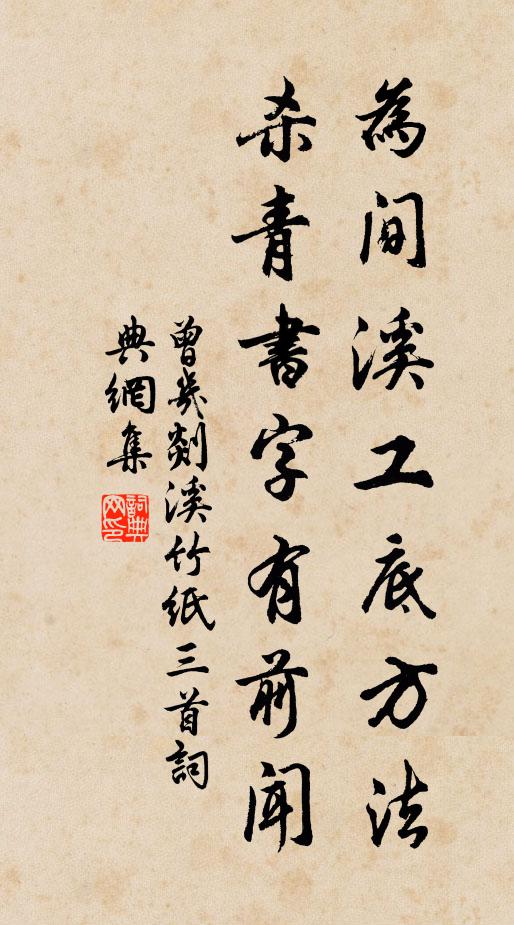 為間溪工底方法
杀青書字有前聞
曾幾剡溪竹紙三首詞
典網集
詞典
网印